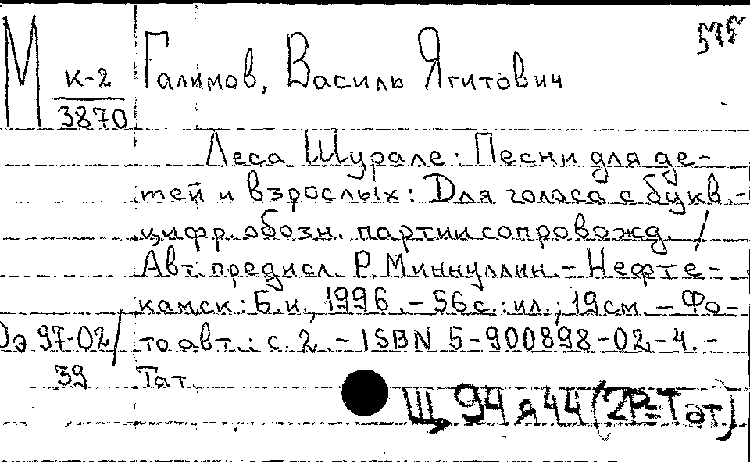 М
К-2
3870
Галимов, Василь Ягитович
Леса Шурале: Песни для де-
тей и взрослых: Для голоса с букв.-
цифр. обозн. партии сопровожд. /
Авт. предисл. Р. Миннуллин. - Нефте-
камск: Б. и., 1996. - 56 с.: ил.; 19 см. - Фо-
то авт.: с. 2. - ISBN 5-900898-02-4. -
Тат.
97-02/
39
Щ 94 я 44 (2Р=Тат)